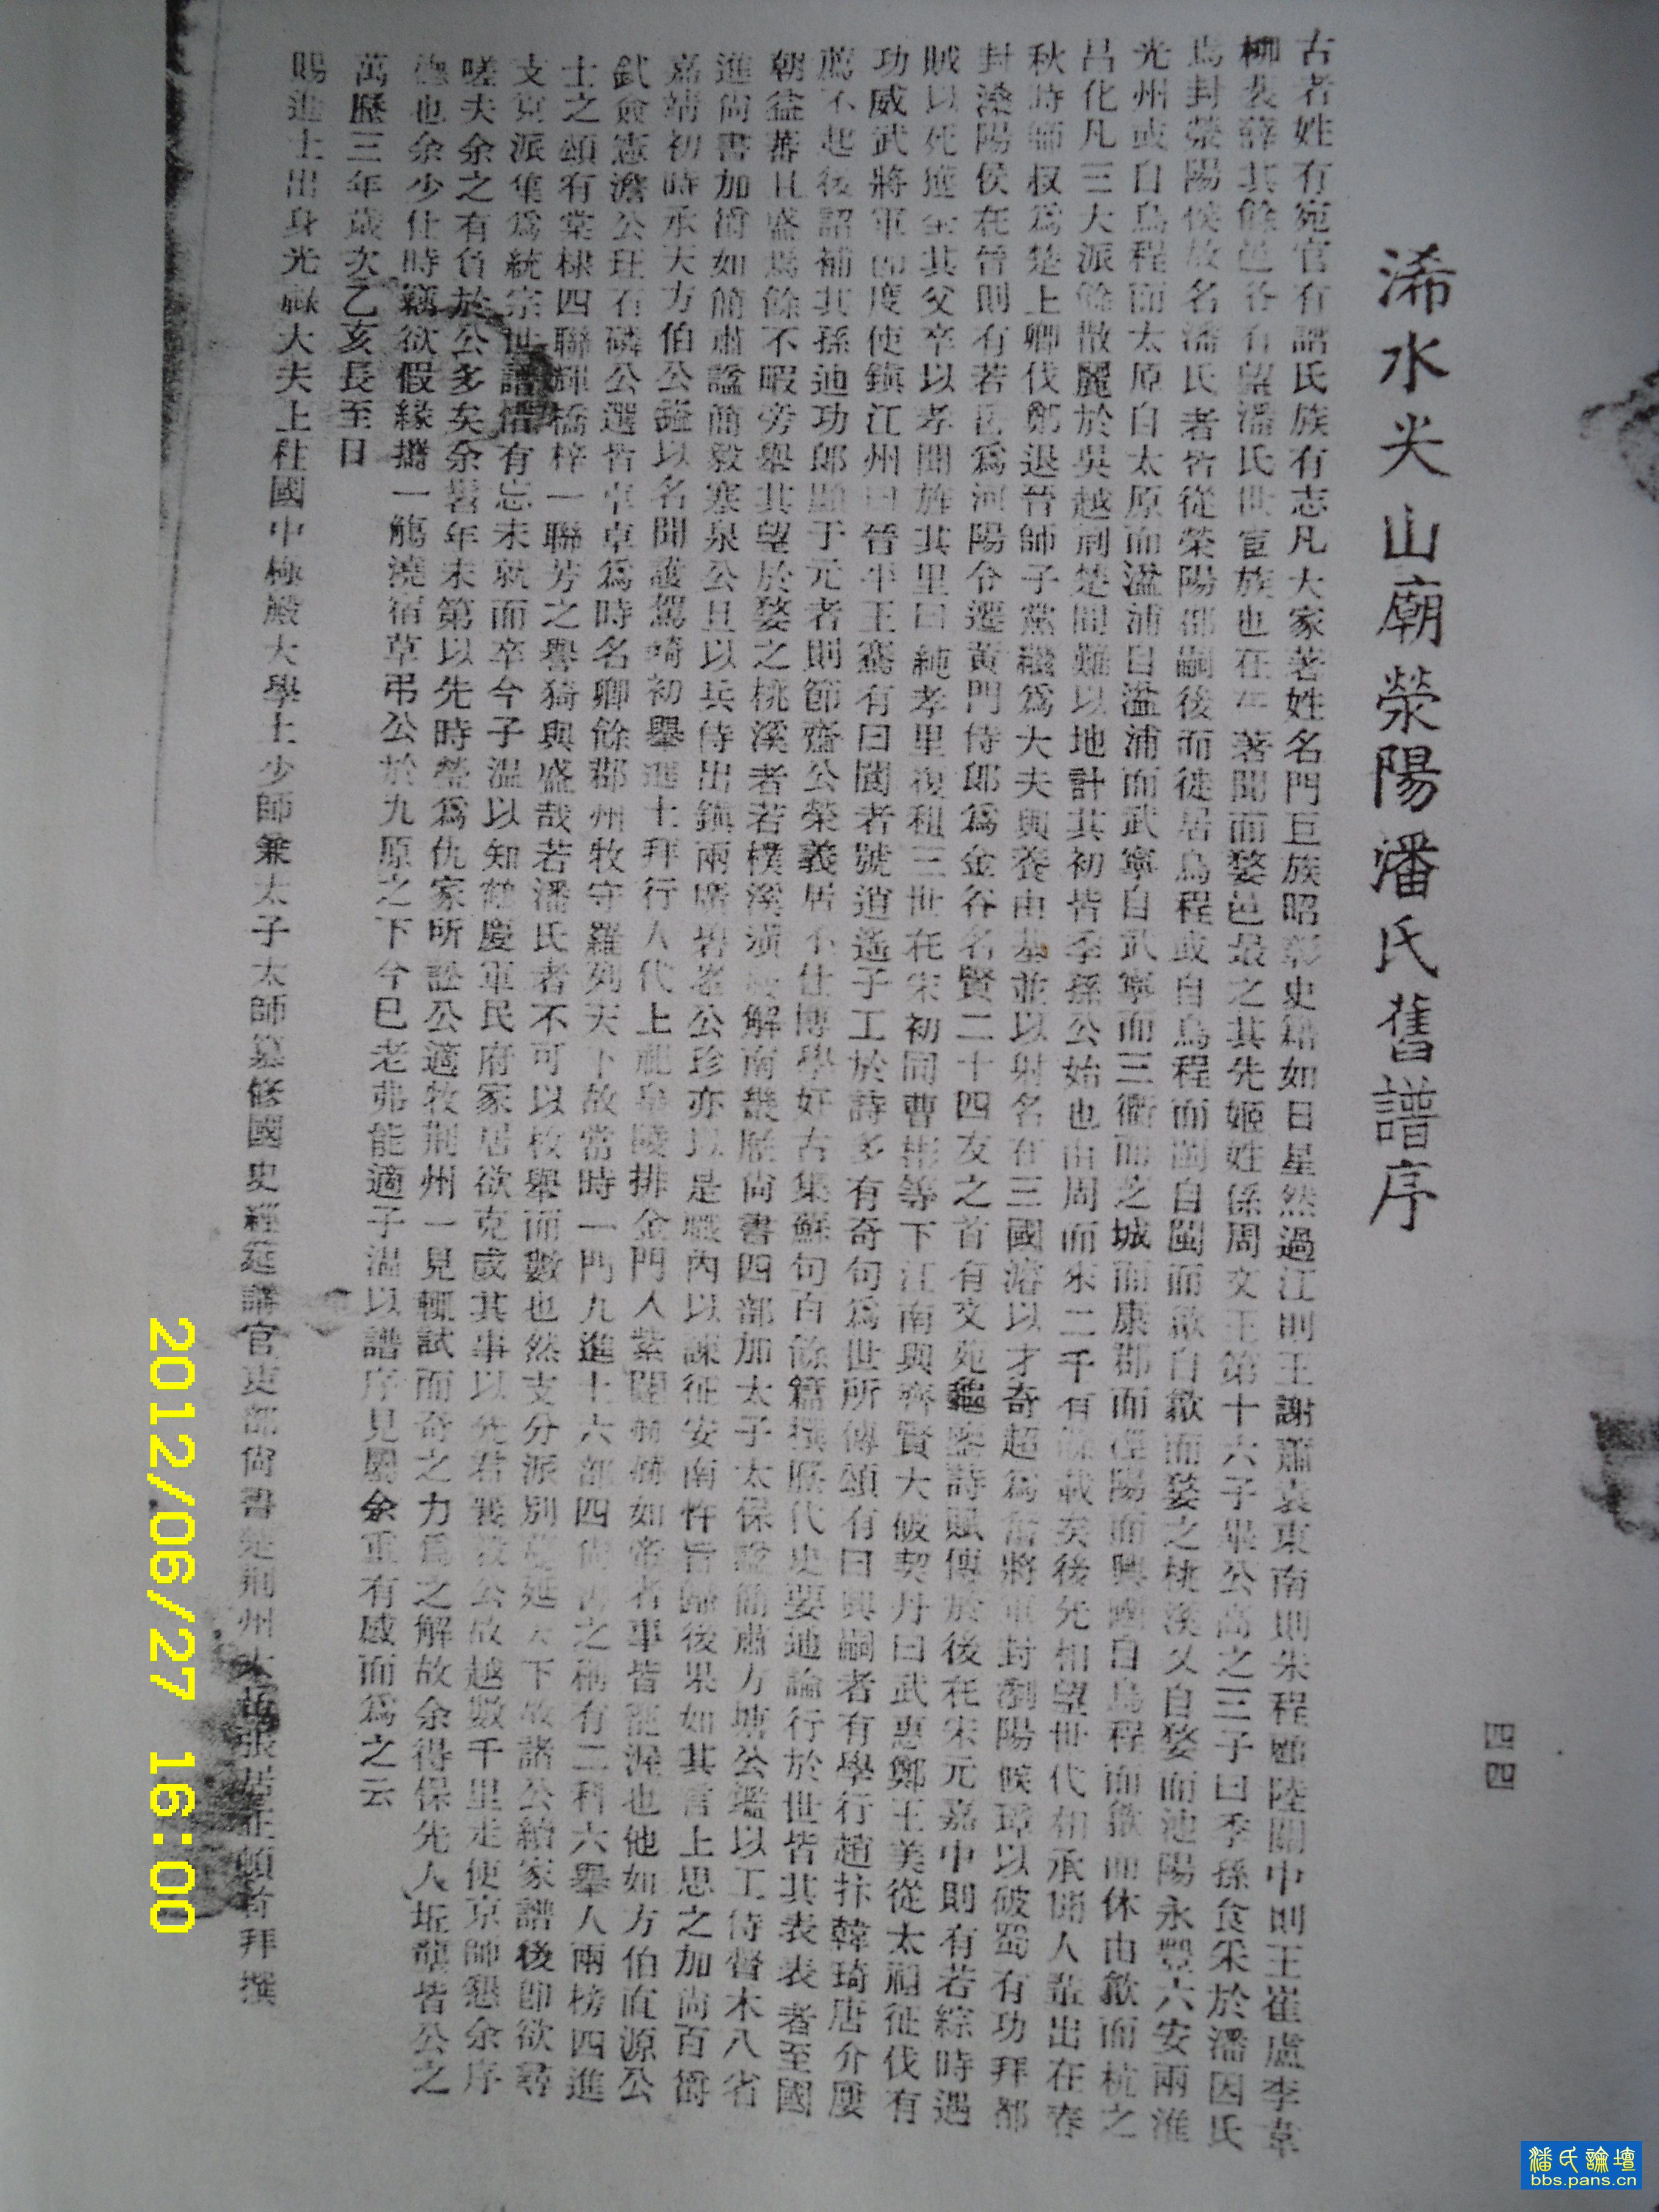 浠水尖山廟滎陽潘氏舊譜序
四四
古者姓有宛官有譜氏族有志凡大家著姓名門巨族昭彰史籍如日星然過江則王謝蕭袁東南則朱程陸關中則王崔盧李韋
柳裴薛其餘邑各有望潘氏世宦族也在著聞而婺邑最之其先姬姓係周文王第十六子畢公高之三子曰季孫食采於潘因氏
焉封滎陽侯故名潘氏者皆從榮陽郡嗣後而徙居烏程或自烏程而閩自閩而歙自歙而婺之桃溪又自婺而池陽永豐六安兩淮
光州或自烏程而太原自太原而溢浦自溢浦而武寧自武寧而三衢而之城而康郡而涇陽而興國自烏程而歙而休由歙而杭之
昌化凡三大派餘散麗於吳越荊楚間難以地計其初皆季孫公始也由周而來二千有餘載矣後先相望世代相承聞人輩出在春
秋時師权為楚上卿伐鄭退晉師子黨繼為大夫與養由基並以射名在三國濬以才奇超為奮將軍封瀏陽候璋以破蜀有功拜都
封溧陽侯在晉則有若岳為河陽令遷黃門侍郎為金谷名賢二十四友之首有文苑詩賦傳於後在宋元嘉中則有若綜時遇
賊以死獲全其父卒以孝聞旌其里曰純孝里復租三世在宋初同曹彬等下江南與齊賢大破契丹曰武惠鄭王美從太祖征伐有
功威武將軍節度使鎮江州曰晉平王騫有曰閬者號逍遙子工於詩多有奇句為世所傳頌有曰興嗣者有學行趙抃韓琦唐介屢
薦不起後詔補其孫迪功郎顯于元者則節齋公榮義居不仕博學好古集蘇句百餘篇撰歷代史要通論行於世皆其表表者至國
朝益蕃且盛焉餘不暇旁舉其望於婺之桃溪者若樸溪潢解南畿歷尚書四部加太子太保謚簡肅方塘公鑑以工侍督木八省
進尚書加爵如簡肅謚簡毅塞泉公旦以兵侍出鎮兩廣碧峯公珍亦以是職內以諫征安南忤旨歸後果如其言上思之加尚百爵
嘉靖初時承天方伯公謚以名聞護駕綺初舉進士拜行人代上祀皇陵排金門入紫闥赫赫如帝者事皆寵渥也他如方伯直源公
鉽僉憲澹公玨石磷公選皆卓卓為時名卿餘郡州牧守羅列天下故當時一門九進士六部四尚書之稱有二科六舉人兩榜四進
士之頌有棠棣四聯輝橋梓一聯芳之譽猗與盛哉若潘氏者不可以枚舉而數也然支分派別蔓延天下故諸公續家譜後即欲尋
支克派隼為統宗世譜惜有忘未就而卒今子溫以知鶴慶軍民府家居欲克成其事以先君義役公故越數千里走使京師懇余序
嗟夫余之有負於公多矣余嘗年未第以先時塋為仇家所訟公適牧荊州一見輒試而奇之力為之解故余得保先人坵壠皆公之
德也余少仕時竊欲假緣攜一觴澆宿草弔公於九原之下今已老弗能適子溫以譜序見屬余重有感而為之云
萬歷三年歲次乙亥長至日
賜進士出身光祿大夫上柱國中極殿大學士少師兼太子太師纂修國史經筵講官吏部尚書楚荊州太岳張居正頓首拜撰
2012/06/27 16:00
潘氏論壇
bbs.pans.cn